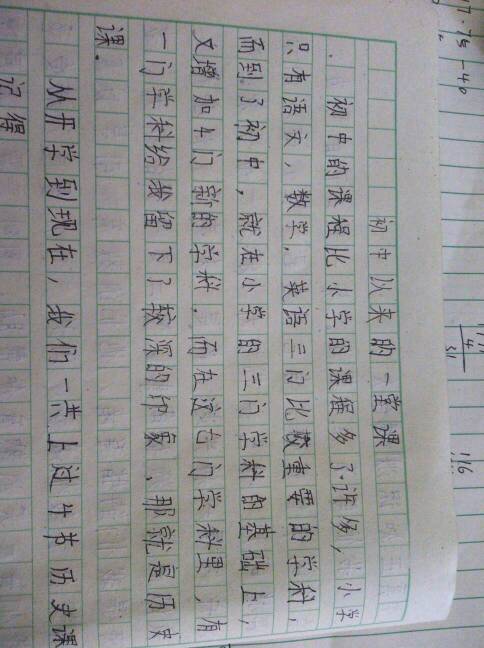 初中以来的一堂课
初中的课程比小学的课程多了许多，小学
只有语文、数学、英语三门比较重要的学科，
而到了初中，就在小学的三门学科的基础上，
又增加4门新的学科．而在这七门学科里，有
一门学科给我留下了较深的印象，那就是历史
课．
从开学到现在，我们一共上过4节历史课
记得